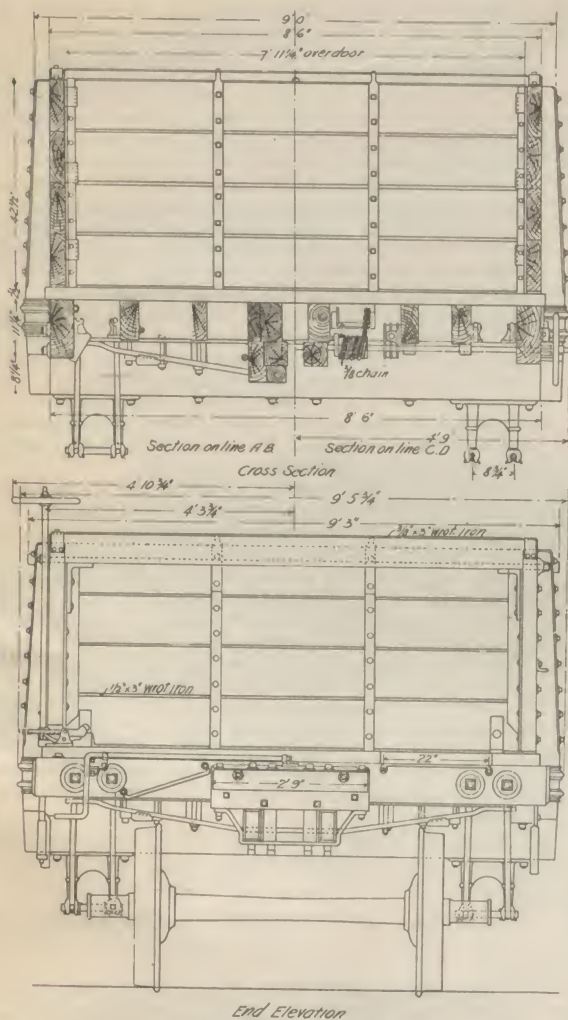 9' 0"
8' 6"
7' 11¼" overdoor
42½"
11½"
8¼"
⅝ chain
8' 6"
4' 9
Section on line A B
Section on line C.D
8¾"
Cross Section
4' 10¾"
9' 5¾"
4' 3¾"
9' 3"
x 3" wrot iron
1½" x 3" wrot iron
22"
2' 9"
End Elevation